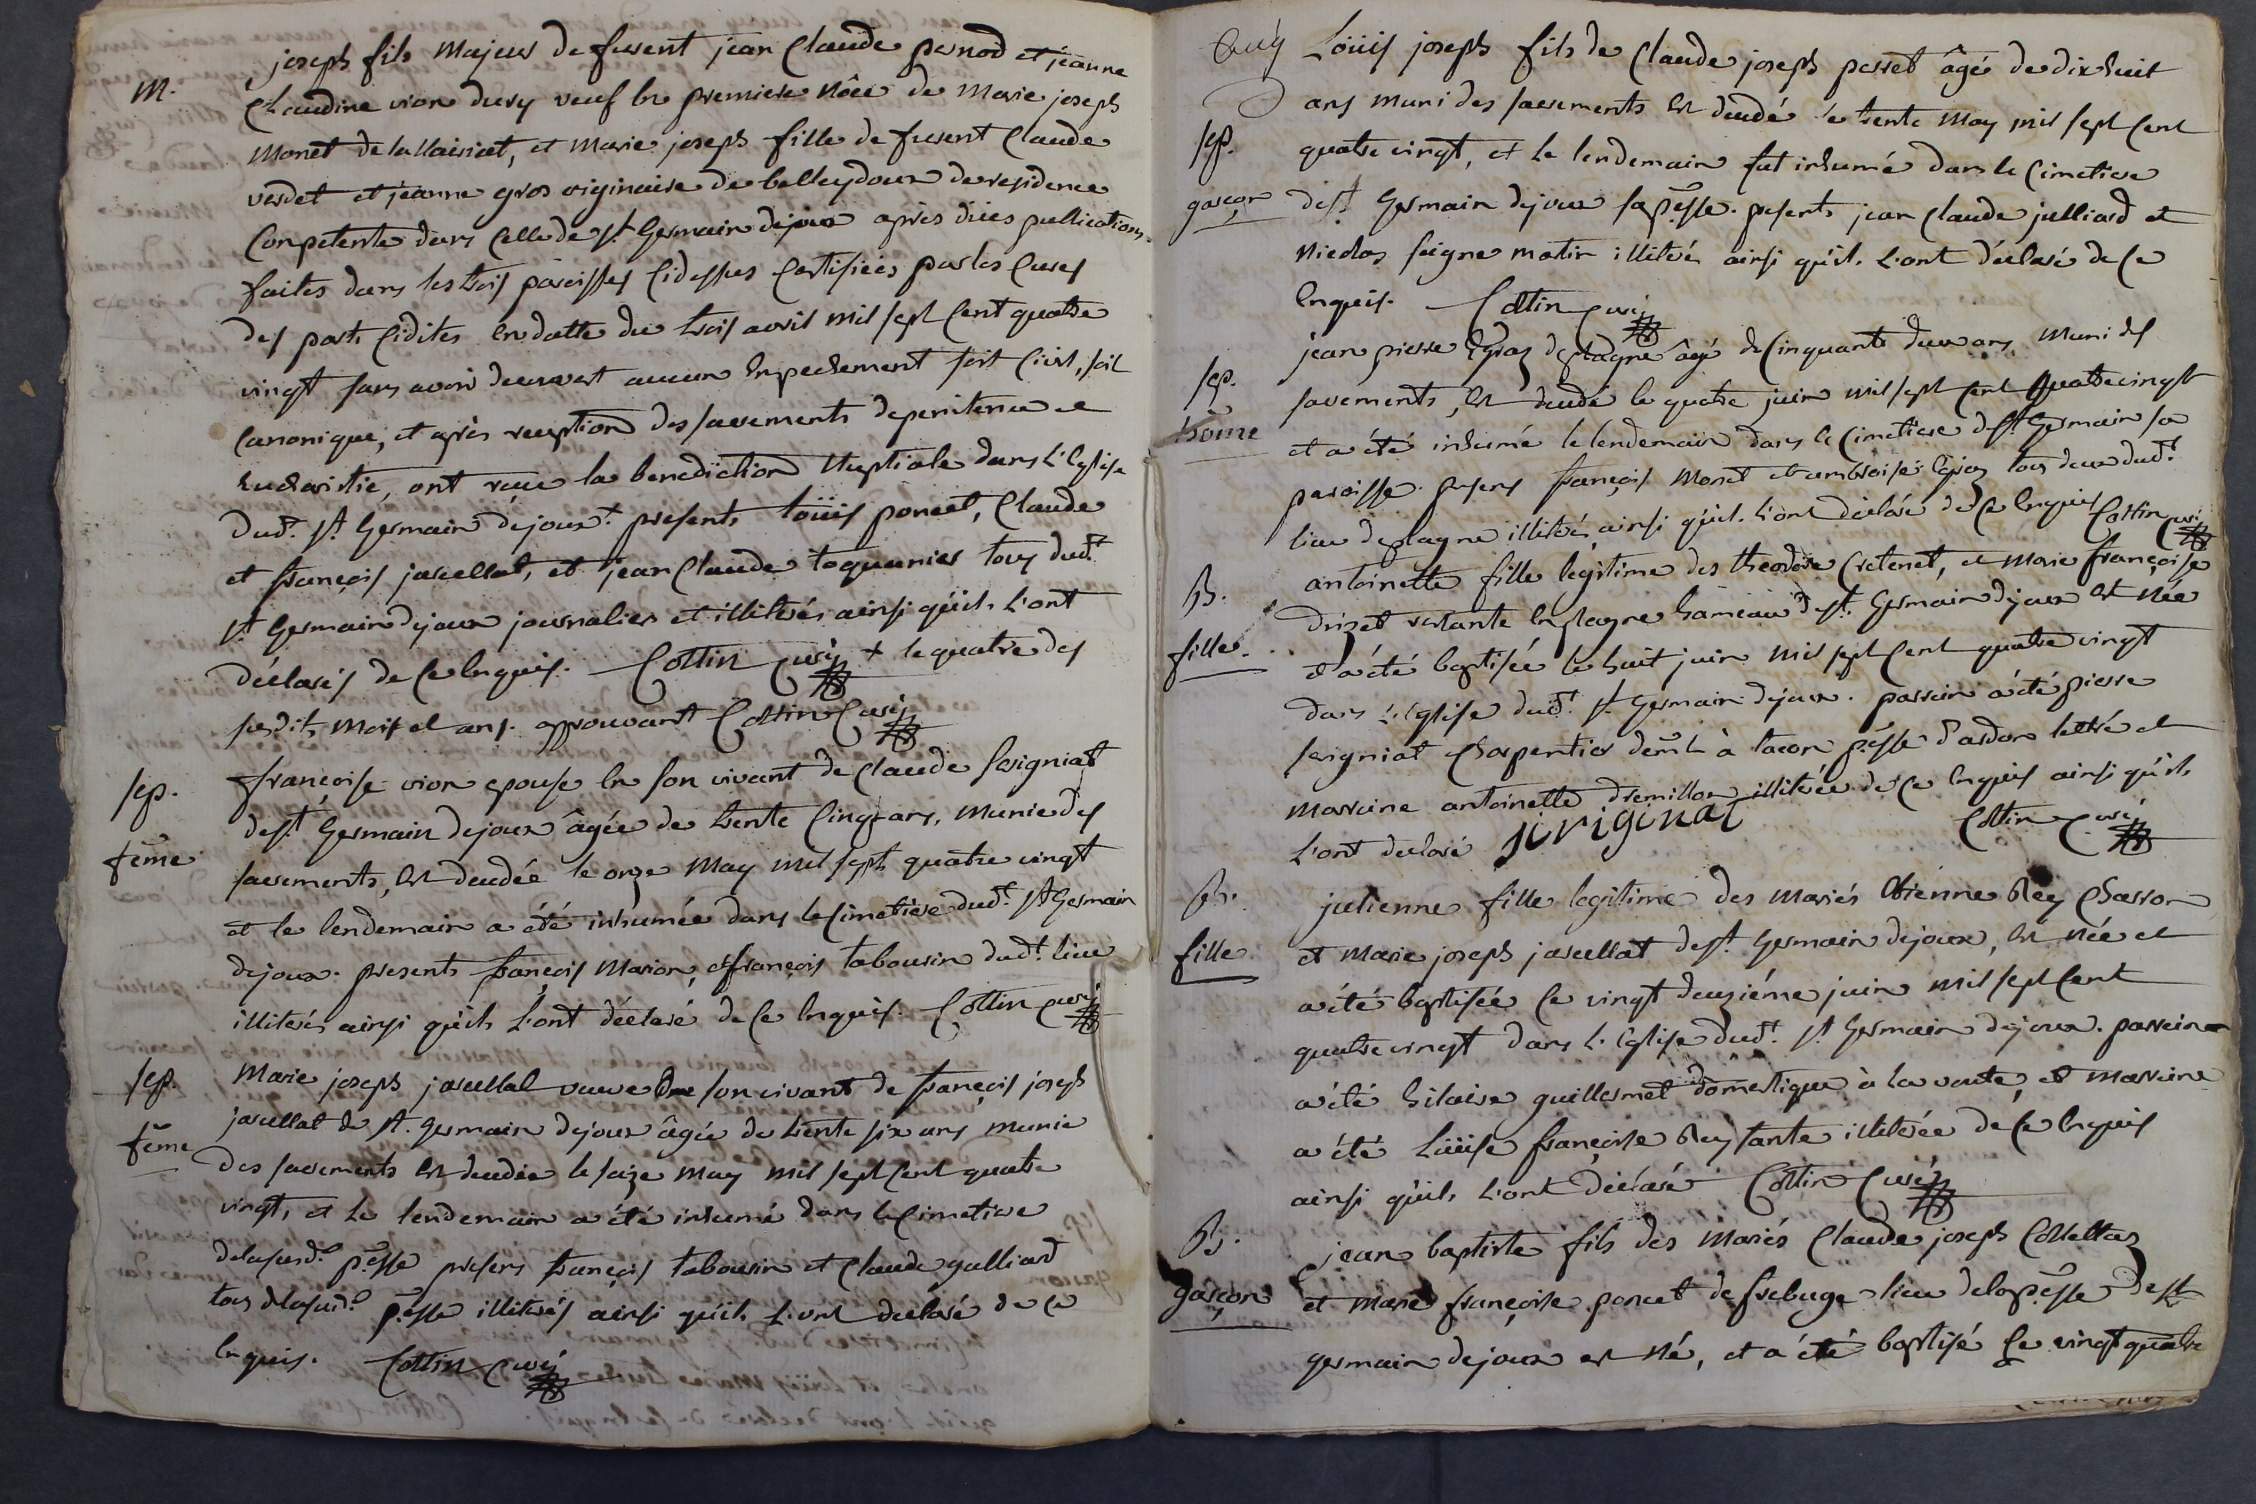 M.
joseph fils Majeur de furent jean Claude pernod et jeanne
Claudine vion dury veuf en premiere nôce de Marie joseph
Monet de lallaisiat, et Marie joseph fille de furent Claude
verdet et jeanne gros originaire de belleydoux de residence
Competente dans Celle de St Germain dejoux après dües publications
faites dans les trois paroisses Cidessus Certifiées par les Curés
des parts Cidites en datte du trois avril mil sept Cent quatre
vingt sans avoir decouvert aucun Enpechement soit Civil, soit
Canonique, et après reception des sacrements de penitence et
Eucharistie, ont reçu la benediction Nuptiale dans L'Eglise
dud.t St Germain dejoux. presents Loüis poncet, Claude
et françois jacellat, et jean Claude toquenier tous dud.t
St Germain dejoux journaliers et illiterés ainsi qu'ils L'ont
déclarés de Ce Enquis. Cottin Curé + le quatre des
susdits Mois et ans. approuvant Cottin Curé
sep.
feme
françoise vion epouse en son vivant de Claude Seigniat
de St Germain dejoux âgée de trente Cinq ans, Munie des
sacrements, est decedée le onze May mil sept quatre vingt
et le lendemain a été inhumée dans le Cimetiere dud.t St Germain
dejoux. presents françois Marion, et françois tabourin dud.t lieu
illiterés ainsi qu'ils L'ont déclaré de Ce Enquis. Cottin Curé
sep.
feme
Marie joseph jacellat veuve son vivant de françois joseph
jacellat de St Germain dejoux âgée de trente six ans munie
des sacrements est decedée le saize May mil sept Cent quatre
vingt, et Le lendemain a été inhumé dans le Cimetiere
delasusd.e p.esse presens françois tabourin et Claude gulliard
tous delasusd.e p.esse illiterés ainsi qu'ils L'ont declaré de ce
Enquis. Cottin Curé
sep.
garçon
Loüis joseph fils de Claude joseph perret âgé de dix huit
ans muni des sacrements est decedé le trente May mil sept Cent
quatre vingt, et Le lendemain fut inhumé dans le Cimetiere
de St Germain dejoux sa p.esse. presents jean Claude julliard et
Nicolas seigne matin illiterés ainsi qu'ils L'ont déclaré de Ce
Enquis. Cottin Curé
sep.
home
jean pierre Egraz deplagne âgé de Cinquante deux ans Muni des
sacrements, est decedé le quatre juin mil sept Cent quatre vingt
et a été inhumé le lendemain dans le Cimetiere de St Germain sa
paroisse. presens françois Monet et ambroise Egraz tous deux dud.t
lieu deplagne illiterés ainsi qu'ils L'ont déclaré de Ce Enquis Cottin Curé
B.
fille.
antoinette fille legitime des theodore Cretenet, et Marie françoise
drizet restante en plagne hameau de St Germain dejoux est née
et a été baptisée le huit juin mil sept Cent quatre vingt
dans L'Eglise dud.t St Germain dejoux. parrain a été pierre
seigniat Charpentier à tacon p.esse d'ardon lettré et
Marraine antoinette dremillon illiterée de Ce Enquis ainsi qu'ils
L'ont declaré Cottin Curé
B.
fille
julienne fille legitime des Mariés Etienne Rey Charron
et Marie joseph jacellat de St Germain dejoux, est née et
a été baptisée Ce vingt deuziéme juin mil sept Cent
quatre vingt dans L'Eglise dud.t St Germain dejoux. parrain
a été hilaire guillermet domestique à la voute, et Marraine
a été Loüise françoise Rey tante illiterée de Ce Enquis
ainsi qu'ils L'ont déclaré Cottin Curé
B.
garçon
jean baptiste fils des Mariés Claude joseph Collettaz
et Marie françoise poncet de frebuge lieu delap.esse de St
germain dejoux est Né, et a été baptisé Ce vingt quatre